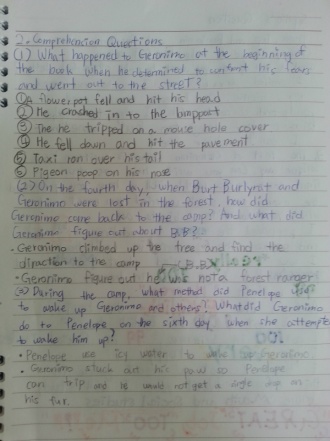 2. Comprehension Questions
(1) What happened to Geronimo at the beginning of
the book when he determined to confront his fears
and went out to the street?
① a flowerpot fell and hit his head
② He crashed in to the lamppost
③ The he tripped on a mouse hole cover
④ He fell down and hit the pavement
⑤ Taxi ran over his tail
⑥ Pigeon poop on his nose
(2) On the fourth day, when Burt Burlyrat and
Geronimo were lost in the forest, how did
Geronimo come back to the camp? And what did
Geronimo figure out about B.B?
· Geronimo climbed up the tree and find the
diraction to the camp
· Geronimo figure out he was not a forest ranger
(3) During the camp, what method did Penelope
to wake up Geronimo and others? What did Geronimo
do to Penelope, on the sixth day, when she attempted
to wake him up?
· Penelope use icy water to wake Geronimo
· Geronimo stuck out his paw so Penelope
can trip and he would not get a single drop on
his fur.